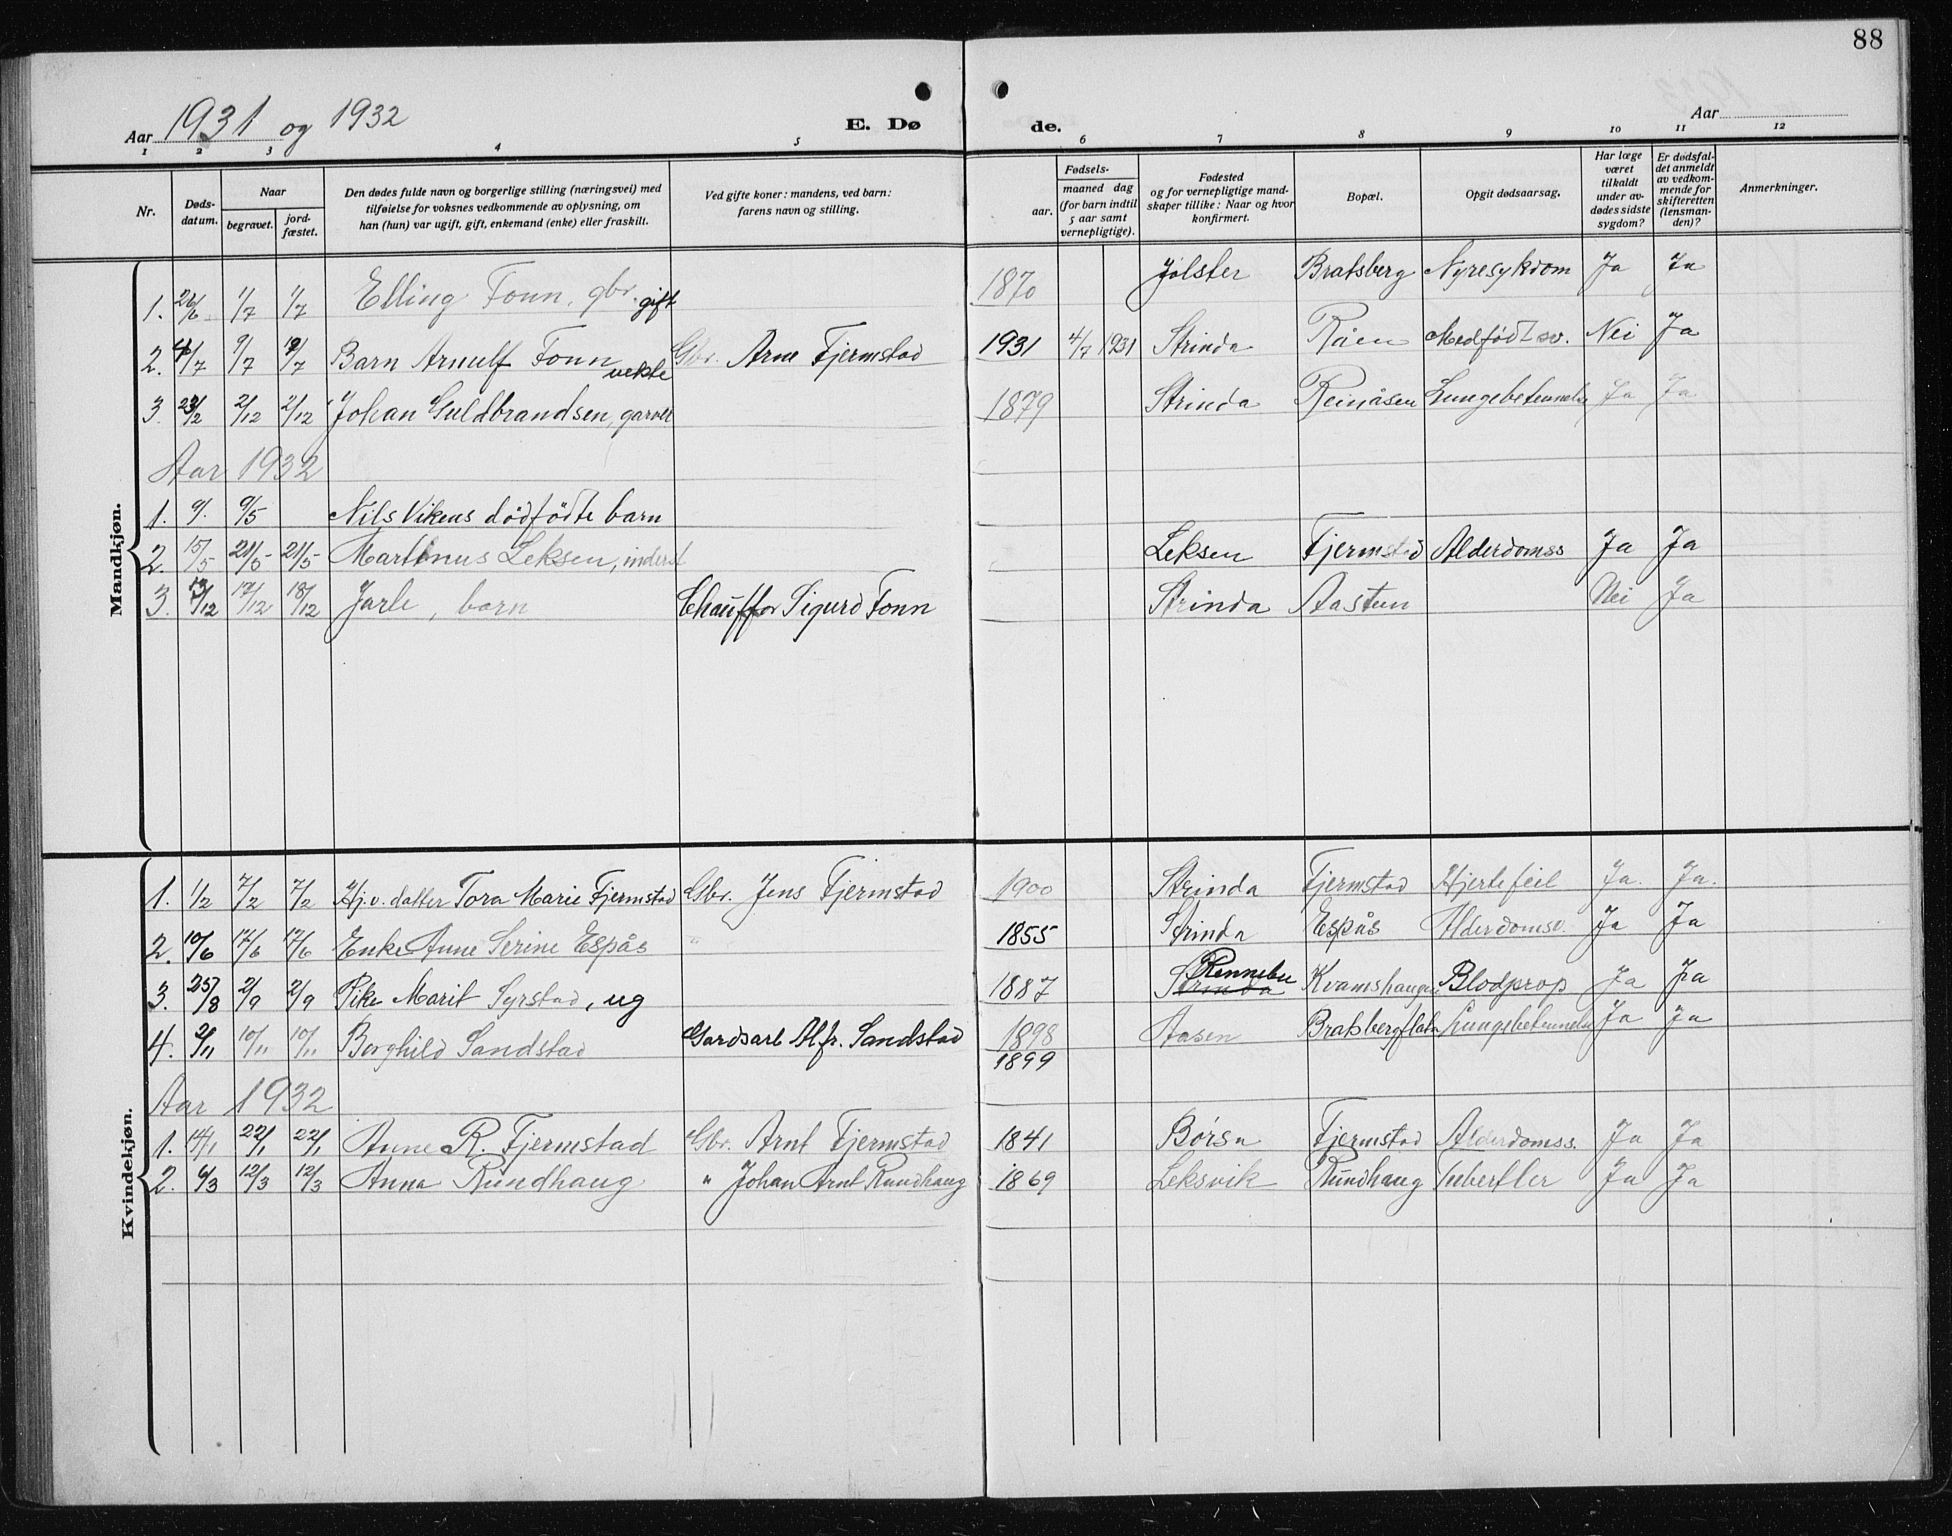 88
Aar 1931 og 1932
E. Døde.
Aar
1 2 3 4 5 6 7 8 9 10 11 12
Nr.
Døds-datum.
Naar
begravet.
jord-fæstet.
Den dødes fulde navn og borgerlige stilling (næringsvei) med tilføielse for voksnes vedkommende av oplysning, om han (hun) var ugift, gift, enkemand (enke) eller fraskilt.
Ved gifte koner: mandens, ved barn: farens navn og stilling.
Fødsels-
aar.
maaned dag (for barn indtil 5 aar samt vernepligtige).
Fødested og for vernepligtige mand-skaper tillike: Naar og hvor konfirmert.
Bopæl.
Opgit dødsaarsag.
Har læge været tilkaldt under av-dødes sidste sygdom?
Er dødsfal-det anmeldt av vedkom-mende for skifteretten (lensman-den)?
Anmerkninger.
Mandkjøn.
1. 1/7 1/7 Elling Fonn, gbr. gift 1870 Jølster Bratsberg Nyresykdom Ja Ja
2. 4/7 9/7 Barn Arnulf Fonn Gbr. Arne Fjermstad 1931 4/7 1931 Strinda Råen Medfödt sv. Nei Ja
3. 2/12 2/12 Johan Guldbrandsen, garver 1879 Strinda Reinåsen Lungebetennelse Ja Ja
Aar 1932
1. 9/5 Nils Vikens dödfödte barn
2. 15/5 21/5 21/5 Martinus Leksen, inderst Leksen Fjermstad Alderdomss Ja Ja
3. 17/12 18/12 Jarle, barn Chauffør Sigurd Fonn Strinda Aastun Nei Ja
Kvindekjøn.
1. 1/2 7/2 7/2 Hj.v. datter Tora Marie Fjermstad Gbr. Jens Fjermstad 1900 Strinda Fjermstad Hjertefeil Ja. Ja.
2. 10/6 17/6 17/6 Enke Anne Serine Espås " 1855 Strinda Espås Alderdomsv. Ja Ja
3. 25/8 2/9 2/9 Pike Marit Syrstad, ug 1887 Strinda Rennebu Kvamshaugen Blodprop Ja Ja
4. 2/11 10/11 10/11 Borghild Sandstad Gardsarb Alfr. Sandstad 1898 Aasen Bratsbergflata Lungebetennelse Ja Ja
1899
Aar 1932
1. 14/1 22/1 22/1 Anne R. Fjermstad Gbr. Arnt Fjermstad 1841 Börsa Fjermstad Alderdomss. Ja Ja
2. 6/3 12/3 12/3 Anna Rundhaug " Johan Arnt Rundhaug 1869 Leksvik Rundhaug Ja Ja